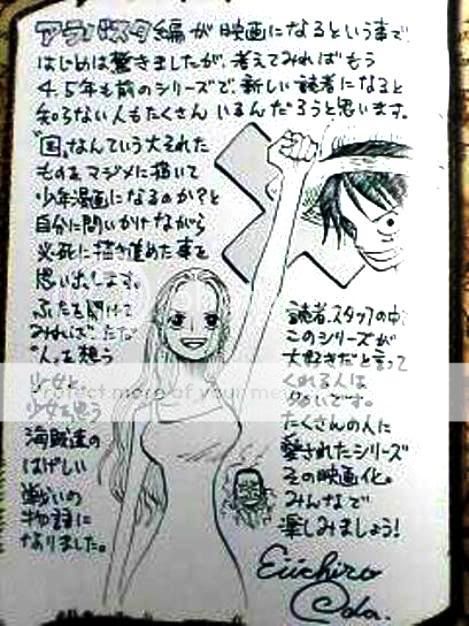 アラバスタ編が映画になるという事で
はじめは驚きましたが、考えてみればもう
4、5年も前のシリーズで、新しい読者になると
知らない人もたくさんいるんだろうと思います。
"国"なんていう大それた
ものをマジメに描いて
少年漫画になるのか？と
自分に問いかけながら
必死に描き進めた事を
思い出します。
ふたを開けて
みれば ただ
"人"を想う
少女と、
少女を思う
海賊達の
はげしい
戦いの
物語に
なりました。
読者、スタッフの中、
このシリーズが
大好きだと言って
くれる人は
多いです。
たくさんの人に
愛されたシリーズ
その映画化。
みんなで
楽しみましょう！
Eiichiro
Oda.
Protect more of your memories